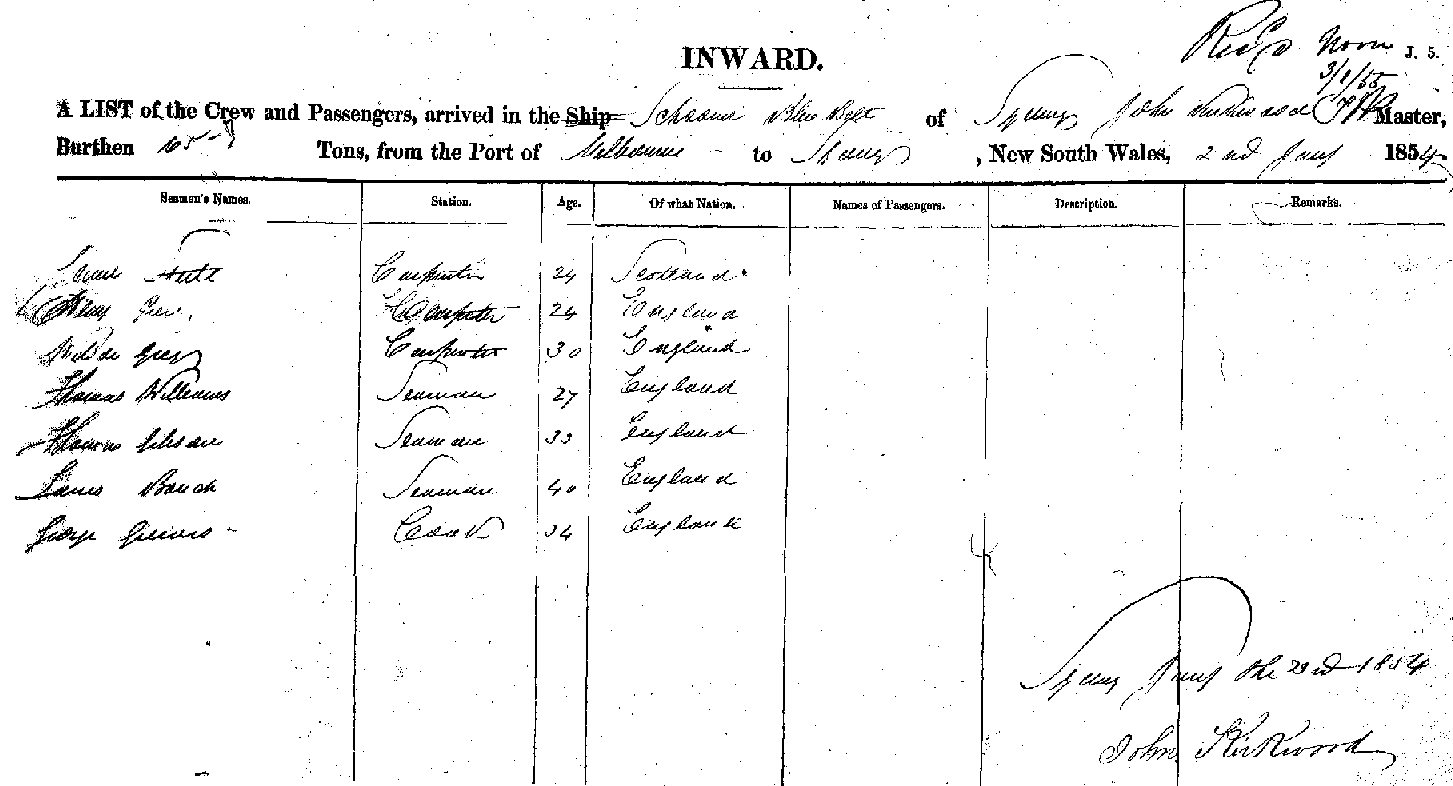 INWARD.
Recd Noon J. 5.
3/1/55
A LIST of the Crew and Passengers, arrived in the Ship Schooner of Sydney John Kirkwood Master,
Burthen Tons, from the Port of Melbourne to Sydney, New South Wales, 2nd Jany 1854
Seamen's Names. Station. Age. Of what Nation. Names of Passengers. Description. Remarks.
Carpenter 24 Scotland
Henry Carpenter 24 England
Carpenter 30 England
Thomas Williams Seaman 27 England
Thomas Seaman 33 England
James Seaman 40 England
George Cook 34 England
Sydney Jany the 2nd 1854
John Kirkwood